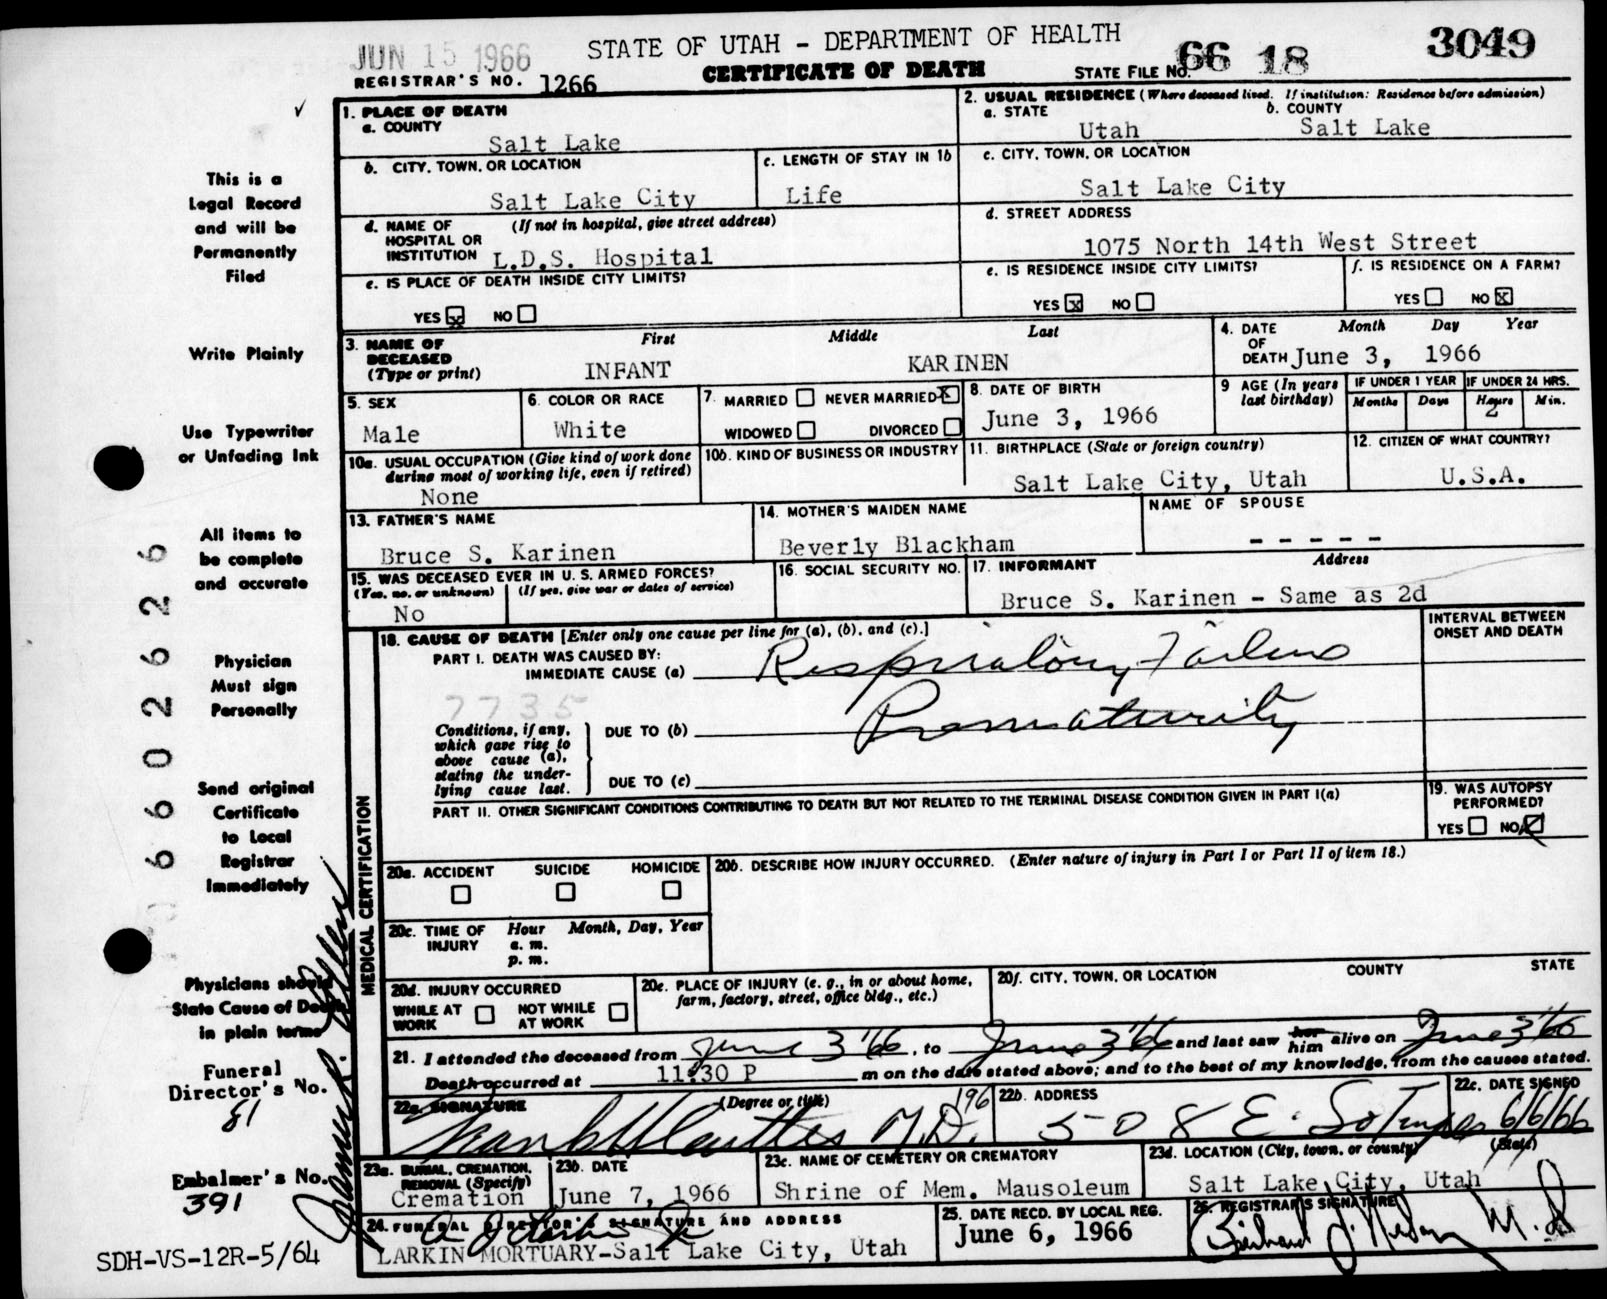 JUN 15 1966
STATE OF UTAH - DEPARTMENT OF HEALTH
CERTIFICATE OF DEATH
REGISTRAR'S NO. 1266
STATE FILE NO. 66 18 3049
This is a
Legal Record
and will be
Permanently
Filed
Write Plainly
Use Typewriter
or Unfading Ink
All items to
be complete
and accurate
Physician
Must sign
Personally
Send original
Certificate
to Local
Registrar
Immediately
Physicians should
State Cause of Death
in plain terms
Funeral
Director's No.
81
Embalmer's No.
391
SDH-VS-12R-5/64
660262 6
1. PLACE OF DEATH
a. COUNTY
Salt Lake
2. USUAL RESIDENCE (Where deceased lived. If institution: Residence before admission)
a. STATE b. COUNTY
Utah Salt Lake
b. CITY, TOWN, OR LOCATION
Salt Lake City
c. LENGTH OF STAY IN 1b
Life
c. CITY, TOWN, OR LOCATION
Salt Lake City
d. NAME OF (If not in hospital, give street address)
HOSPITAL OR
INSTITUTION L.D.S. Hospital
d. STREET ADDRESS
1075 North 14th West Street
e. IS PLACE OF DEATH INSIDE CITY LIMITS?
YES X NO
e. IS RESIDENCE INSIDE CITY LIMITS?
YES X NO
f. IS RESIDENCE ON A FARM?
YES NO X
3. NAME OF
DECEASED
(Type or print)
First Middle Last
INFANT KARINEN
4. DATE Month Day Year
OF
DEATH June 3, 1966
5. SEX
Male
6. COLOR OR RACE
White
7. MARRIED NEVER MARRIED X
WIDOWED DIVORCED
8. DATE OF BIRTH
June 3, 1966
9 AGE (In years
last birthday)
IF UNDER 1 YEAR
Months Days
IF UNDER 24 HRS.
Hours Min.
2
10a. USUAL OCCUPATION (Give kind of work done
during most of working life, even if retired)
None
10b. KIND OF BUSINESS OR INDUSTRY
11. BIRTHPLACE (State or foreign country)
Salt Lake City, Utah
12. CITIZEN OF WHAT COUNTRY?
U.S.A.
13. FATHER'S NAME
Bruce S. Karinen
14. MOTHER'S MAIDEN NAME
Beverly Blackham
NAME OF SPOUSE
- - - - -
15. WAS DECEASED EVER IN U. S. ARMED FORCES?
(Yes, no, or unknown) (If yes, give war or dates of service)
No
16. SOCIAL SECURITY NO.
17. INFORMANT Address
Bruce S. Karinen - Same as 2d
MEDICAL CERTIFICATION
18. CAUSE OF DEATH [Enter only one cause per line for (a), (b), and (c).]
INTERVAL BETWEEN
ONSET AND DEATH
PART I. DEATH WAS CAUSED BY:
IMMEDIATE CAUSE (a) Respiratory Failure
7735
Conditions, if any,
which gave rise to
above cause (a),
stating the under-
lying cause last.
DUE TO (b) Prematurity
DUE TO (c)
PART II. OTHER SIGNIFICANT CONDITIONS CONTRIBUTING TO DEATH BUT NOT RELATED TO THE TERMINAL DISEASE CONDITION GIVEN IN PART I(a)
19. WAS AUTOPSY
PERFORMED?
YES NO X
20a. ACCIDENT SUICIDE HOMICIDE
20b. DESCRIBE HOW INJURY OCCURRED. (Enter nature of injury in Part I or Part II of item 18.)
20c. TIME OF Hour Month, Day, Year
INJURY a. m.
p. m.
20d. INJURY OCCURRED
WHILE AT NOT WHILE
WORK AT WORK
20e. PLACE OF INJURY (e. g., in or about home,
farm, factory, street, office bldg., etc.)
20f. CITY, TOWN, OR LOCATION COUNTY STATE
21. I attended the deceased from June 3 '66, to June 3 '66 and last saw her him alive on June 3 '66
Death occurred at 11:30 P m on the date stated above; and to the best of my knowledge, from the causes stated.
22a. SIGNATURE (Degree or title)
M.D. 196
22b. ADDRESS
508 E. So Temple
22c. DATE SIGNED
6/6/66
23a. BURIAL, CREMATION,
REMOVAL (Specify)
Cremation
23b. DATE
June 7, 1966
23c. NAME OF CEMETERY OR CREMATORY
Shrine of Mem. Mausoleum
23d. LOCATION (City, town, or county) (State)
Salt Lake City, Utah
24. FUNERAL DIRECTOR'S SIGNATURE AND ADDRESS
LARKIN MORTUARY-Salt Lake City, Utah
25. DATE RECD. BY LOCAL REG.
June 6, 1966
26. REGISTRAR'S SIGNATURE
M.D.